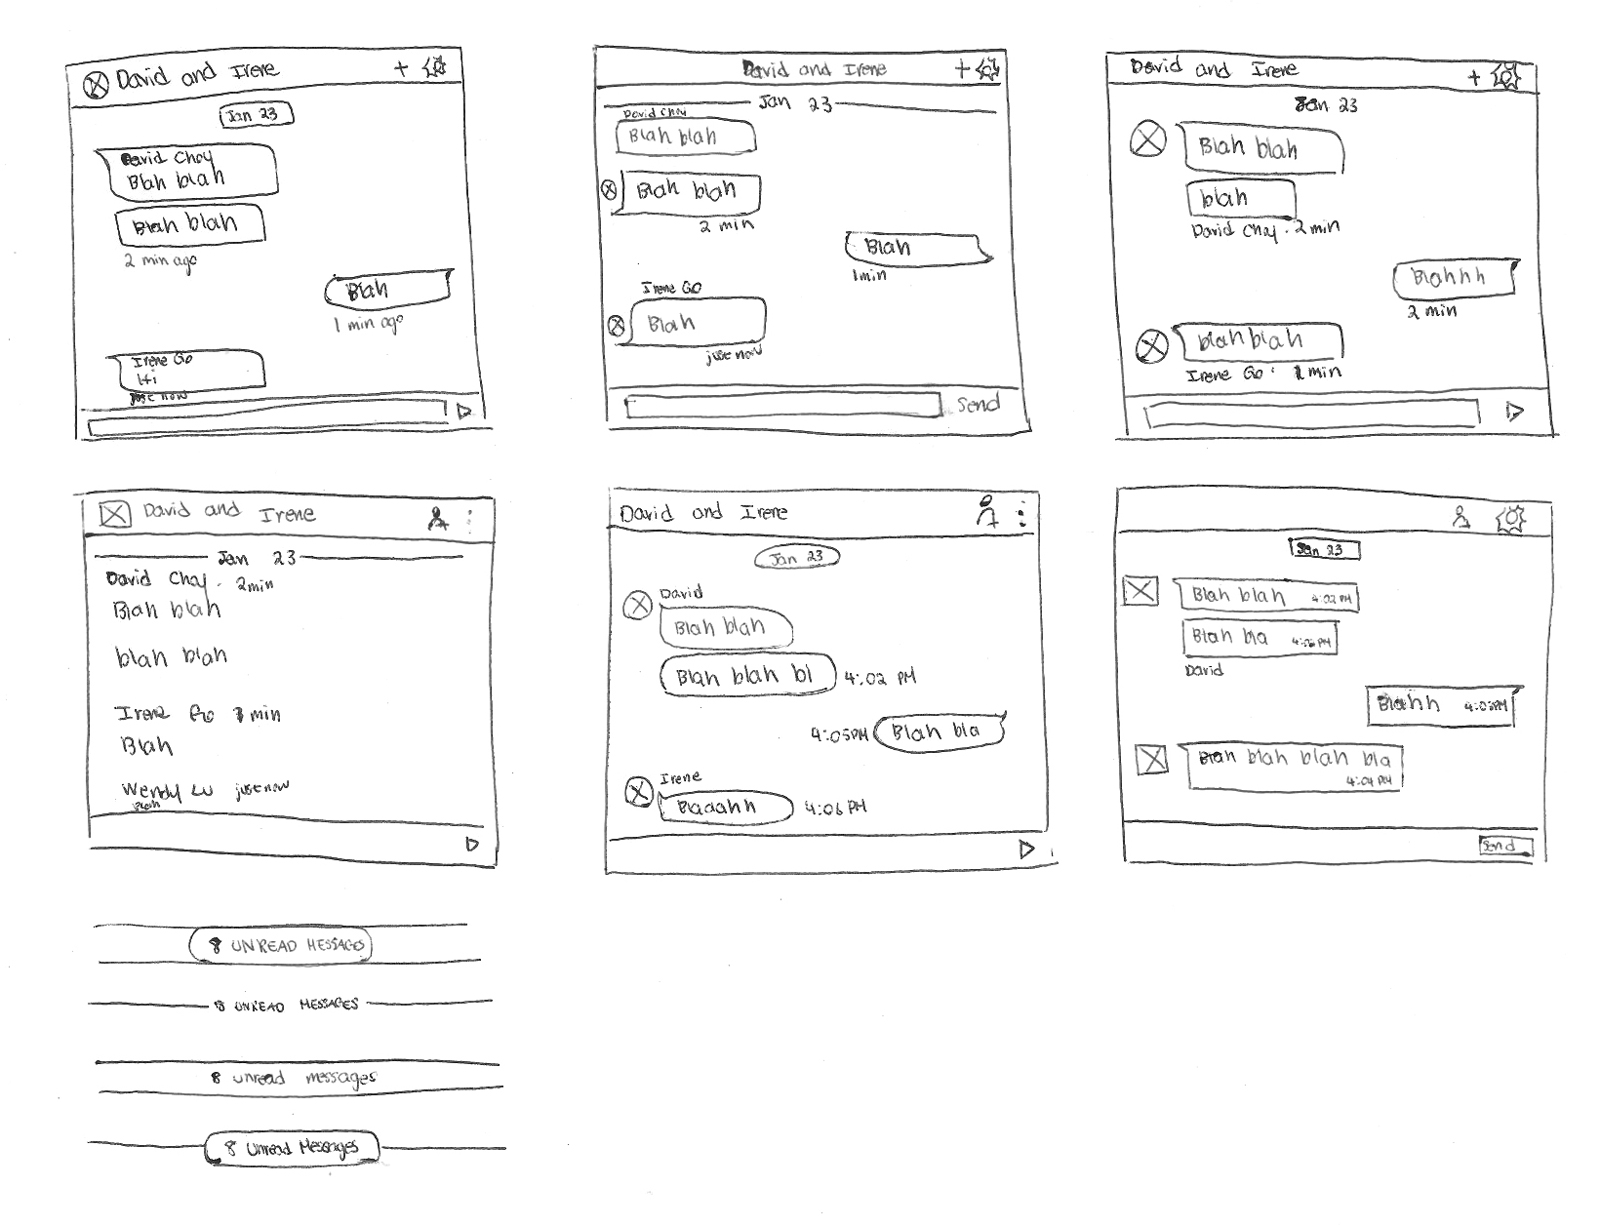 David and Irene +
Jan 23
David Choy
Blah blah
Blah blah
2 min ago
Blah
1 min ago
Irene Go
Hi
just now
David and Irene +
Jan 23
David Choy
Blah blah
Blah blah
2 min
Blah
1min
Irene Go
Blah
just now
Send
David and Irene +
Jan 23
Blah blah
blah
David Choy · 2 min
Blahhh
2 min
blah blah
Irene Go · 1 min
David and Irene
Jan 23
David Choy · 2min
Blah blah
blah blah
Irene Go 1 min
Blah
Wendy Lu just now
Blah
David and Irene
Jan 23
David
Blah blah
Blah blah bl 4:02 PM
4:05PM Blah bla
Irene
Blaaahh 4:06 PM
Jan 23
Blah blah 4:02PM
Blah bla
David
Blahh
Blah blah blah bla
4:04 PM
Send
8 UNREAD MESSAGES
8 UNREAD MESSAGES
8 unread messages
8 Unread Messages